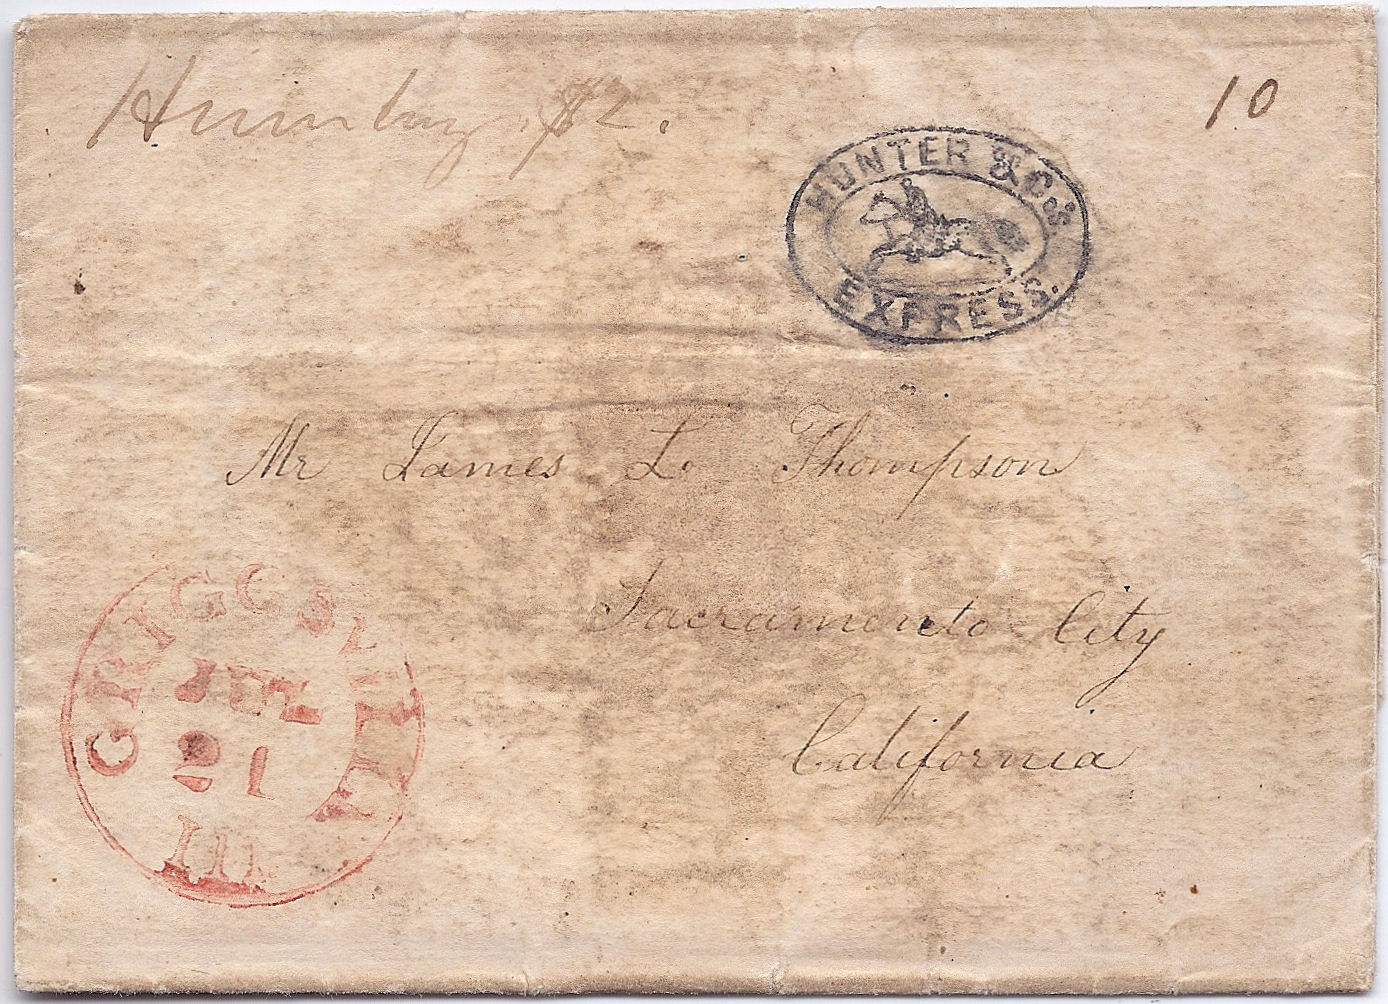 Humbug. $2.
10
HUNTER & Co's
EXPRESS.
Mr James L. Thompson
Sacramento City
California
GRIGGSVILLE
JUL
21
Ill.